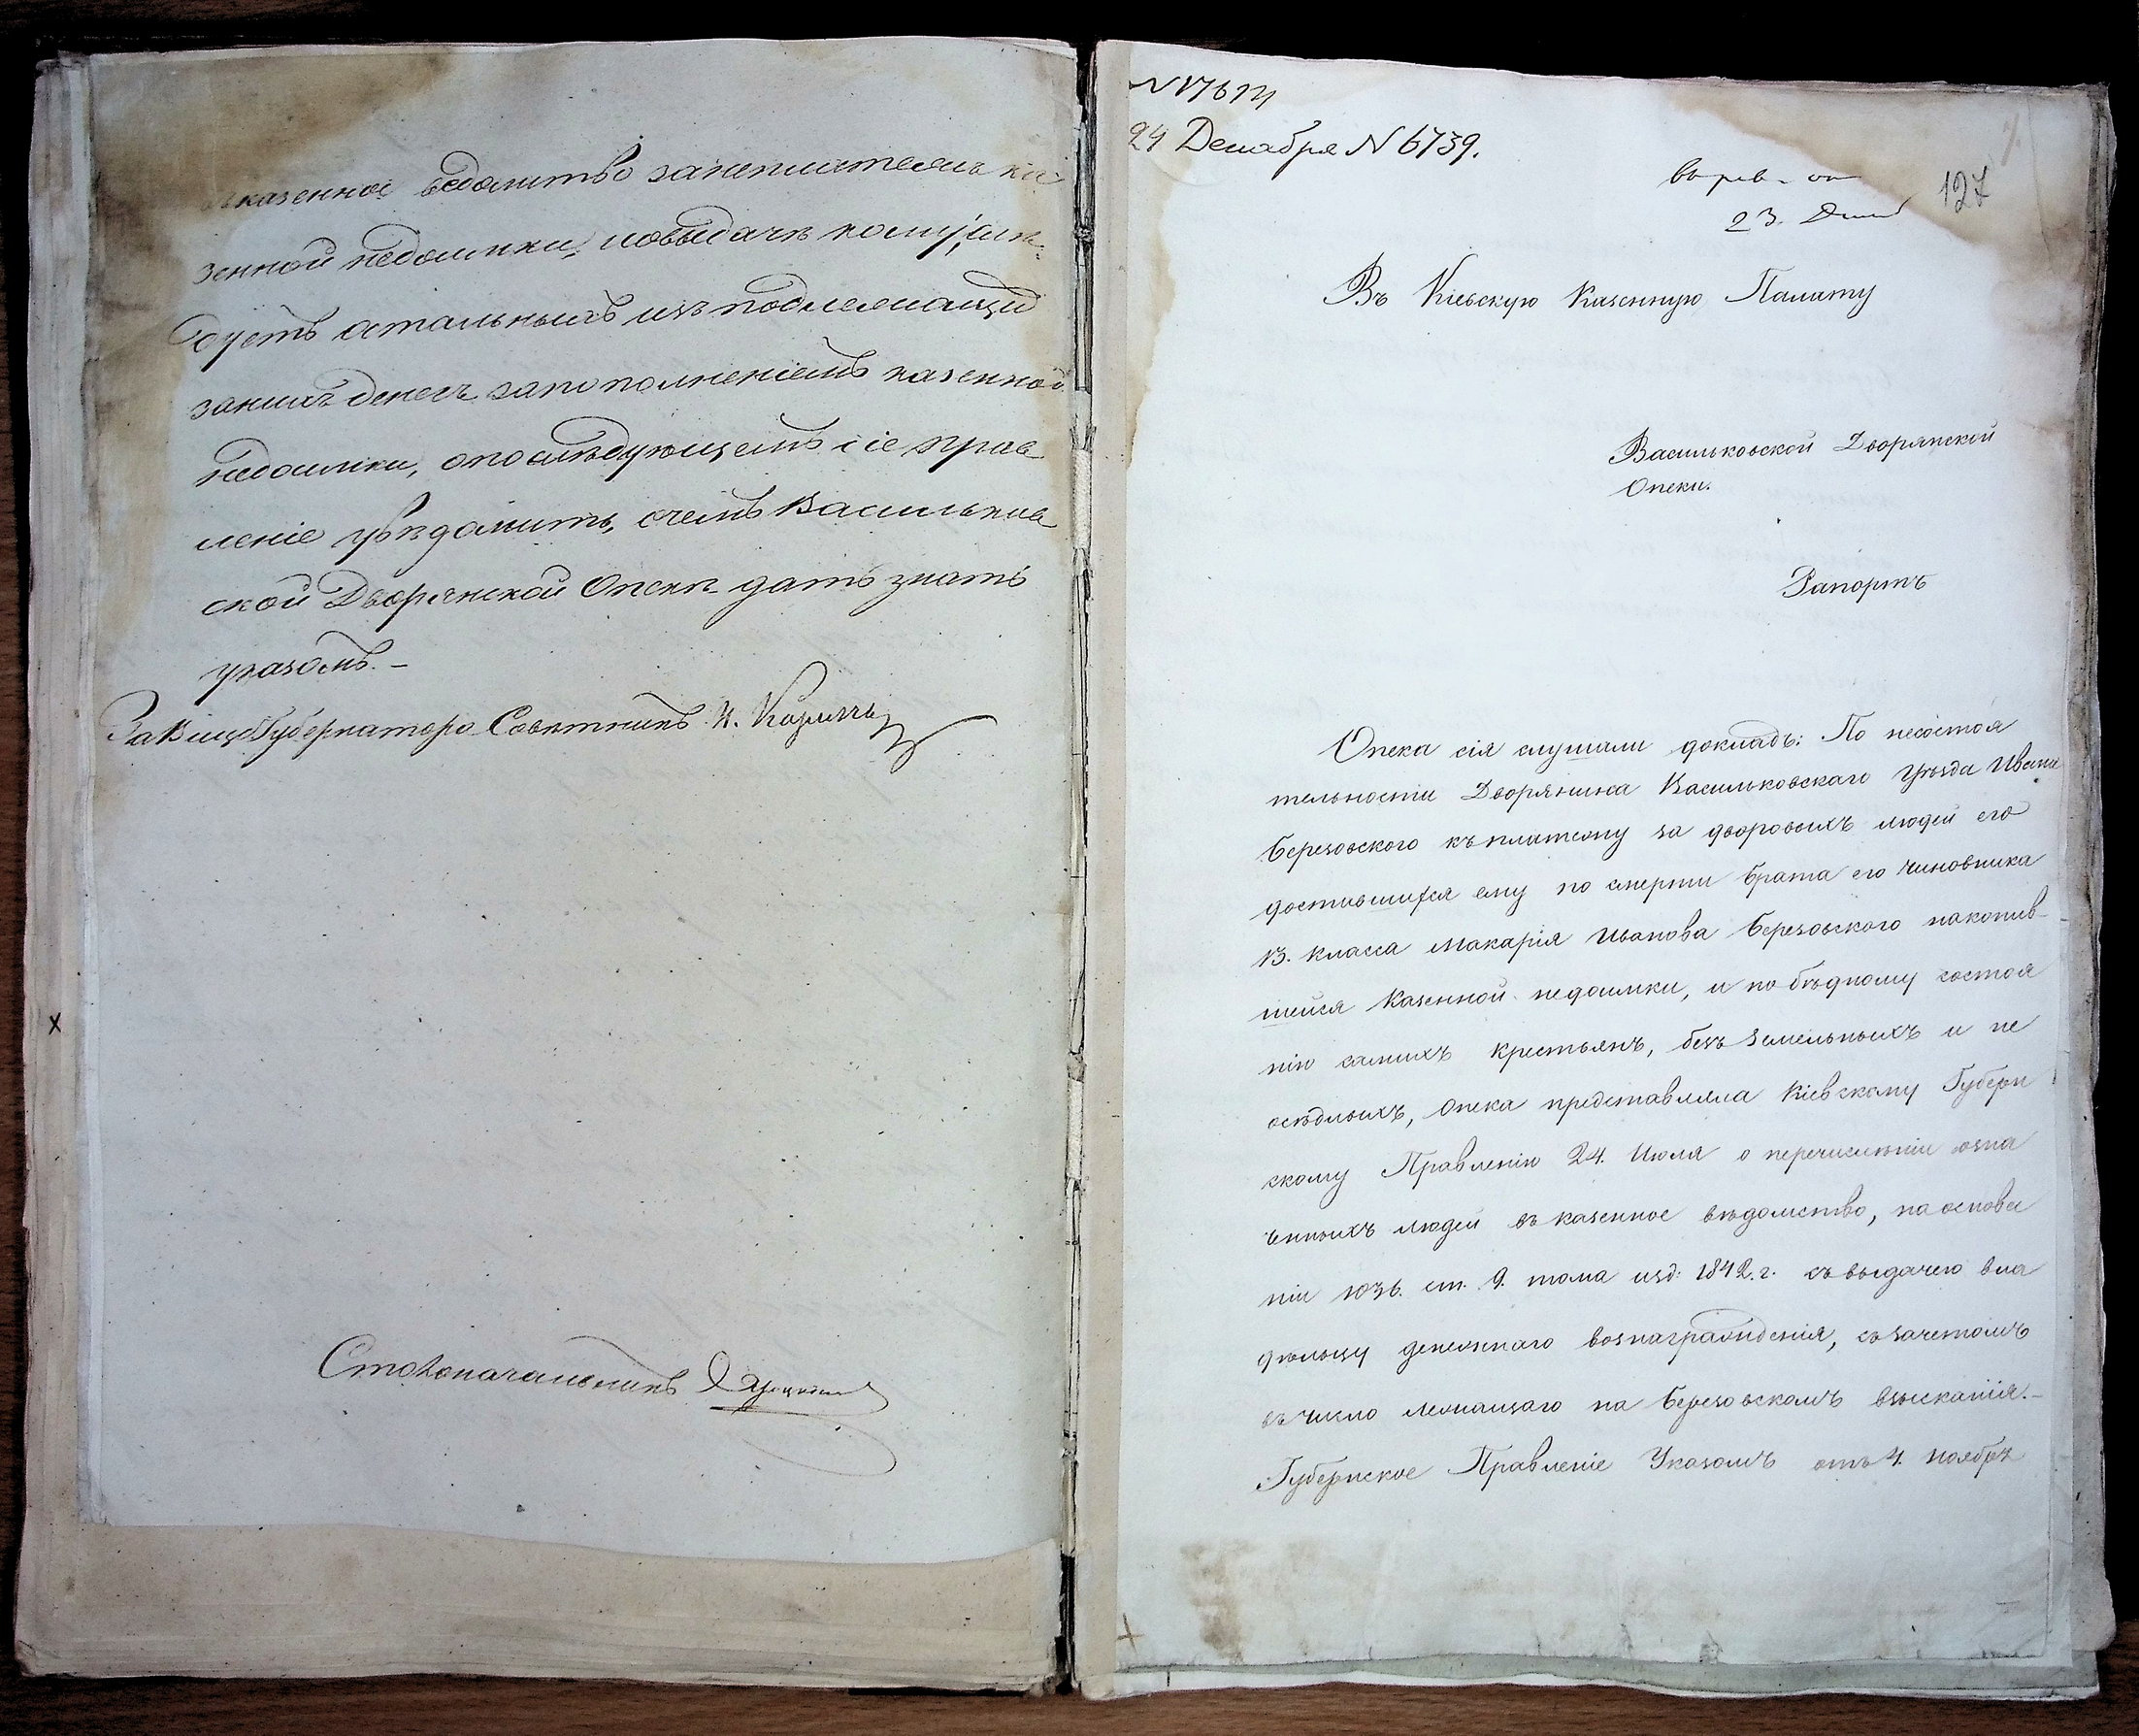 казенное ведомство занеплатежъ ка-
зенной недоимки, ивыдачѣ кому слѣ-
дуетъ остальныхъ изъ подлежащи
заними денегъ запополненіемъ казенной
недоимки, опослѣдующемъ сіе Прав
леніе увѣдомить, очемъ Васильков
ской Дворянской Опекѣ дать знать
указомъ. –
За Вице Губернатора Совѣтникъ
Столоначальникъ
N 17614
24 Декабря N 6739.
127
23.
Въ Кіевскую Казенную Палату
Васильковской Дворянской
Опеки.
Рапортъ
Опека сія слушали докладъ: По несостоя
тельности Дворянина Васильковскаго Уѣзда Ивана
Березовского къ платежу за дворовыхъ людей его
доставшихся ему по смерти брата его чиновника
13. класса Макарія Иванова Березовского накопив-
шейся Казенной недоимки, и по бѣдному состоя
нію самихъ крестьянъ, безъ земельныхъ и не
осѣдлыхъ, Опека представляла Кіевскому Губерн
скому Правленію 24. Июля о перечисленіи озна
ченныхъ людей въ казенное вѣдомство, на основа
ніи 1036. ст. 9. тома изд: 1842. г. съ выдачею вла
дѣльцу денежнаго вознагражденія, съ зачетомъ
въ число лежащаго на Березовскомъ взысканія. –
Губернское Правленіе Указомъ отъ 4. Ноября